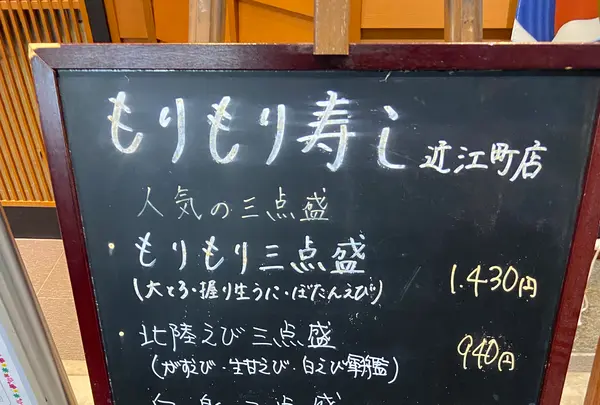 もりもり寿し 近江町店
人気の三点盛
・もりもり三点盛 1.430円
(大とろ・握り生うに・ぼたんえび)
・北陸えび三点盛 940円
(がすえび・生甘えび・白えび軍艦)
三点盛